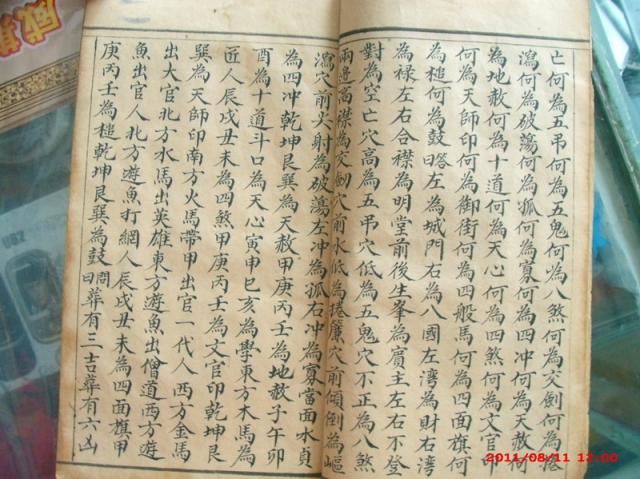 亡何為五吊何為五鬼何為八煞何為交劍何為捲
瀉何為破蕩何為孤何為寡何為四冲何為天赦何
為地赦何為十道何為天心何為四煞何為文官印
何為天師印何為御街何為四般馬何為四面旗何
為槌何為鼓答曰左為城門右為八國左湾為財右湾
為禄左右合襟為明堂前後生峯為賓主左右不登
對為空亡穴高為五吊穴低為五鬼穴不正為八煞
兩邊高襟為交劍穴前水低為捲廉穴前傾倒為嶇
瀉穴前尖射為破蕩左冲為孤右冲為寡當面水貞
為四冲乾坤艮巽為天赦甲庚丙壬為地赦子午卯
酉為十道斗口為天心寅申巳亥為學東方木馬為
匠人辰戌丑未為四煞甲庚丙壬為文官印乾坤艮
巽為天師印南方火馬帶甲出官一代人西方金馬
出大官北方水馬出英雄東方遊魚出僧道西方遊
魚出官人北方遊魚打網人辰戌丑未為四面旗甲
庚丙壬為槌乾坤艮巽為鼓問曰葬有三吉葬有六凶
2011/08/11 13:00